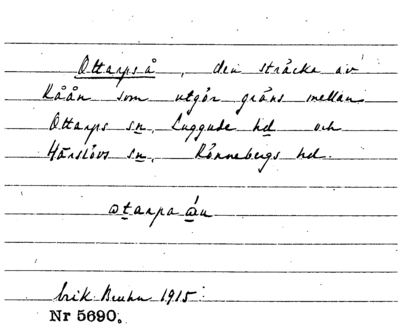 Ottarpså, den sträcka av
Råån som utgör gräns mellan
Ottarps sn, Luggude hd och
Härslövs sn, Rönnebergs hd.
Erik Bruhn 1915
Nr 5690.